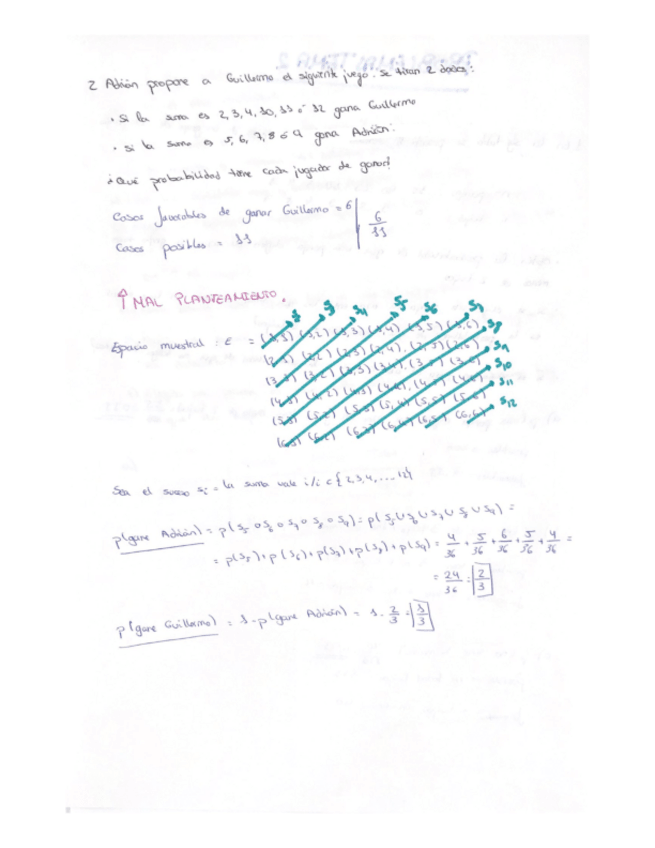 2 Adrián propone a Guillermo el siguiente juego. se tiran 2 dados:
· Si la suma es 2, 3, 4, 10, 11 ó 12 gana Guillermo
· si la suma es 5, 6, 7, 8 ó 9 gana Adrián.
¿Qué probabilidad tiene cada jugador de ganar?
Casos favorables de ganar Guillermo = 6 | 6/11
Casos posibles = 11
↑ MAL PLANTEAMIENTO.
S4 S5 S6 S7
Espacio muestral: E = (1,1) (1,2) (1,3) (1,4), (1,5) (1,6) S8
(2,1) (2,2) (2,3) (2,4), (2,5) (2,6) S9
(3,1) (3,2) (3,3) (3,4), (3,5) (3,6) S10
(4,1) (4,2) (4,3) (4,4), (4,5) (4,6) S11
(5,1) (5,2) (5,3) (5,4) (5,5) (5,6) S12
(6,1) (6,2) (6,3) (6,4) (6,5) (6,6)
Sea el suceso Si = la suma vale i / i ∈ {2,3,4,...,12}
p(gane Adrián) = p(S5 o S6 o S7 o S8 o S9) = p(S5 ∪ S6 ∪ S7 ∪ S8 ∪ S9) =
= p(S5) + p(S6) + p(S7) + p(S8) + p(S9) = 4/36 + 5/36 + 6/36 + 5/36 + 4/36 =
= 24/36 = 2/3
p(gane Guillermo) = 1 - p(gane Adrián) = 1 - 2/3 = 1/3